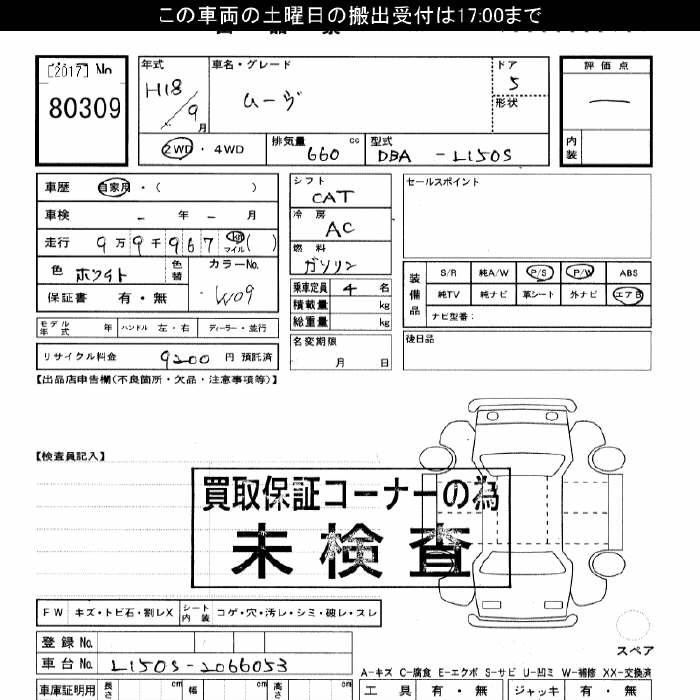 この車両の土曜日の搬出受付は17:00まで
[2017] No
80309
年式
H18/9月
車名・グレード
ムーヴ
ドア
5
形状
評価点
—
内装
2WD ・ 4WD
排気量
660 cc
型式
DBA - L150S
車歴 自家用・( )
車検 - 年 - 月
走行 9万9千967 km マイル ( )
色 ホワイト
色替
カラーNo.
W09
保証書 有・無
シフト
CAT
冷房
AC
燃料
ガソリン
乗車定員 4 名
積載量 kg
総重量 kg
名変期限
月 日
セールスポイント
装備品
S/R 純A/W P/S P/W ABS
純TV 純ナビ 革シート 外ナビ エアB
ナビ型番:
後日品
モデル年式 年 ハンドル 左・右 ディーラー・並行
リサイクル料金 9200 円 預託済
【出品店申告欄(不良箇所・欠品・注意事項等)】
【検査員記入】
買取保証コーナーの為
未検査
FW キズ・トビ石・割レX シート内装 コゲ・穴・汚レ・シミ・破レ・スレ
登録No.
車台No. L150S-2066053
スペア
A-キズ C-腐食 E-エクボ S-サビ U-凹ミ W-補修 XX-交換済
車庫証明用 長さ cm 幅 cm 高さ cm
工具 有・無 ジャッキ 有・無